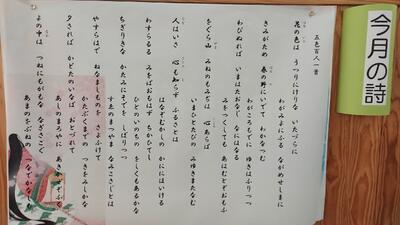 今月の詩
五色百人一首
花の色は うつりにけりな いたづらに
わがみよにふる ながめせしまに
きみがため 春の野にいでて わかなつむ
わがころもでに ゆきはふりつつ
わびぬれば いまはたおなじ なにはなる
みをつくしても あはむとぞおもふ
をぐら山 みねのもみぢば 心あらば
いまひとたびの みゆきまたなむ
人はいさ 心も知らず ふるさとは
はなぞむかしの かににほひける
わすらるる みをばおもはず ちかひてし
ひとのいのちの をしくもあるかな
ちぎりきな かたみにそでを しぼりつつ
すゑのまつやま なみこさじとは
やすらはで ねなましものを さよふけて
かたぶくまでの つきをみしかな
夕されば かどたのいなば おとづれて
あしのまろやに あきかぜぞふく
よの中は つねにもがもな なぎさこぐ
あまのをぶねの つなでかなしも